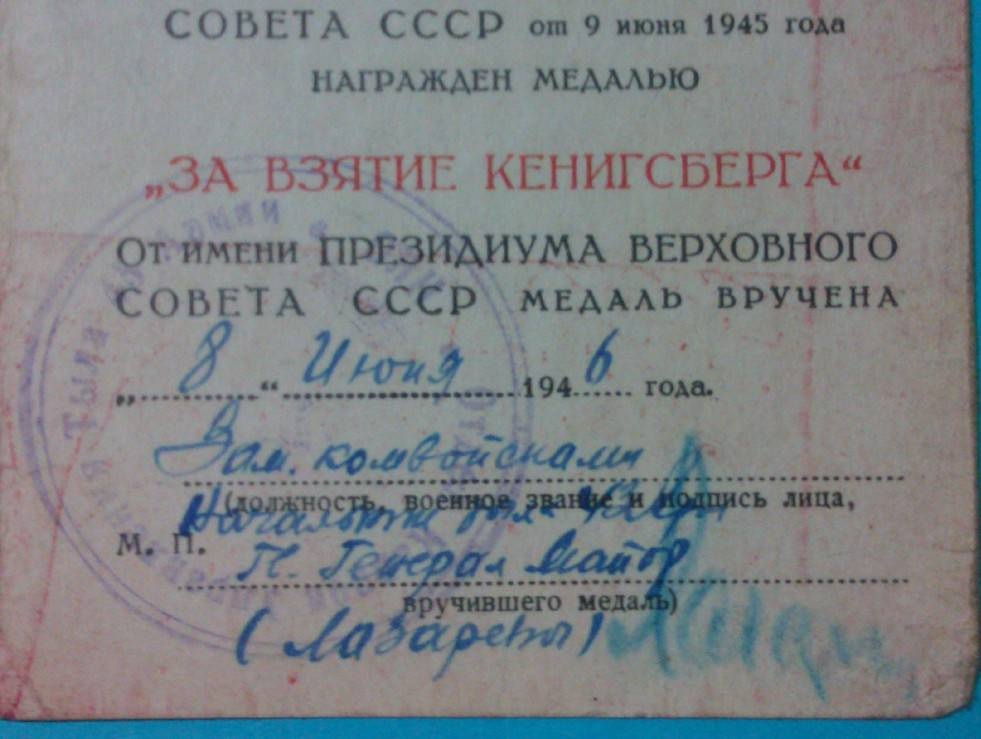 СОВЕТА СССР от 9 июня 1945 года
НАГРАЖДЕН МЕДАЛЬЮ
„ЗА ВЗЯТИЕ КЕНИГСБЕРГА“
От имени ПРЕЗИДИУМА ВЕРХОВНОГО
СОВЕТА СССР МЕДАЛЬ ВРУЧЕНА
„8“ Июня 1946 года.
Зам. комвойсками
(должность, военное звание и подпись лица,
Начальник
М. П.
Генерал Майор
вручившего медаль)